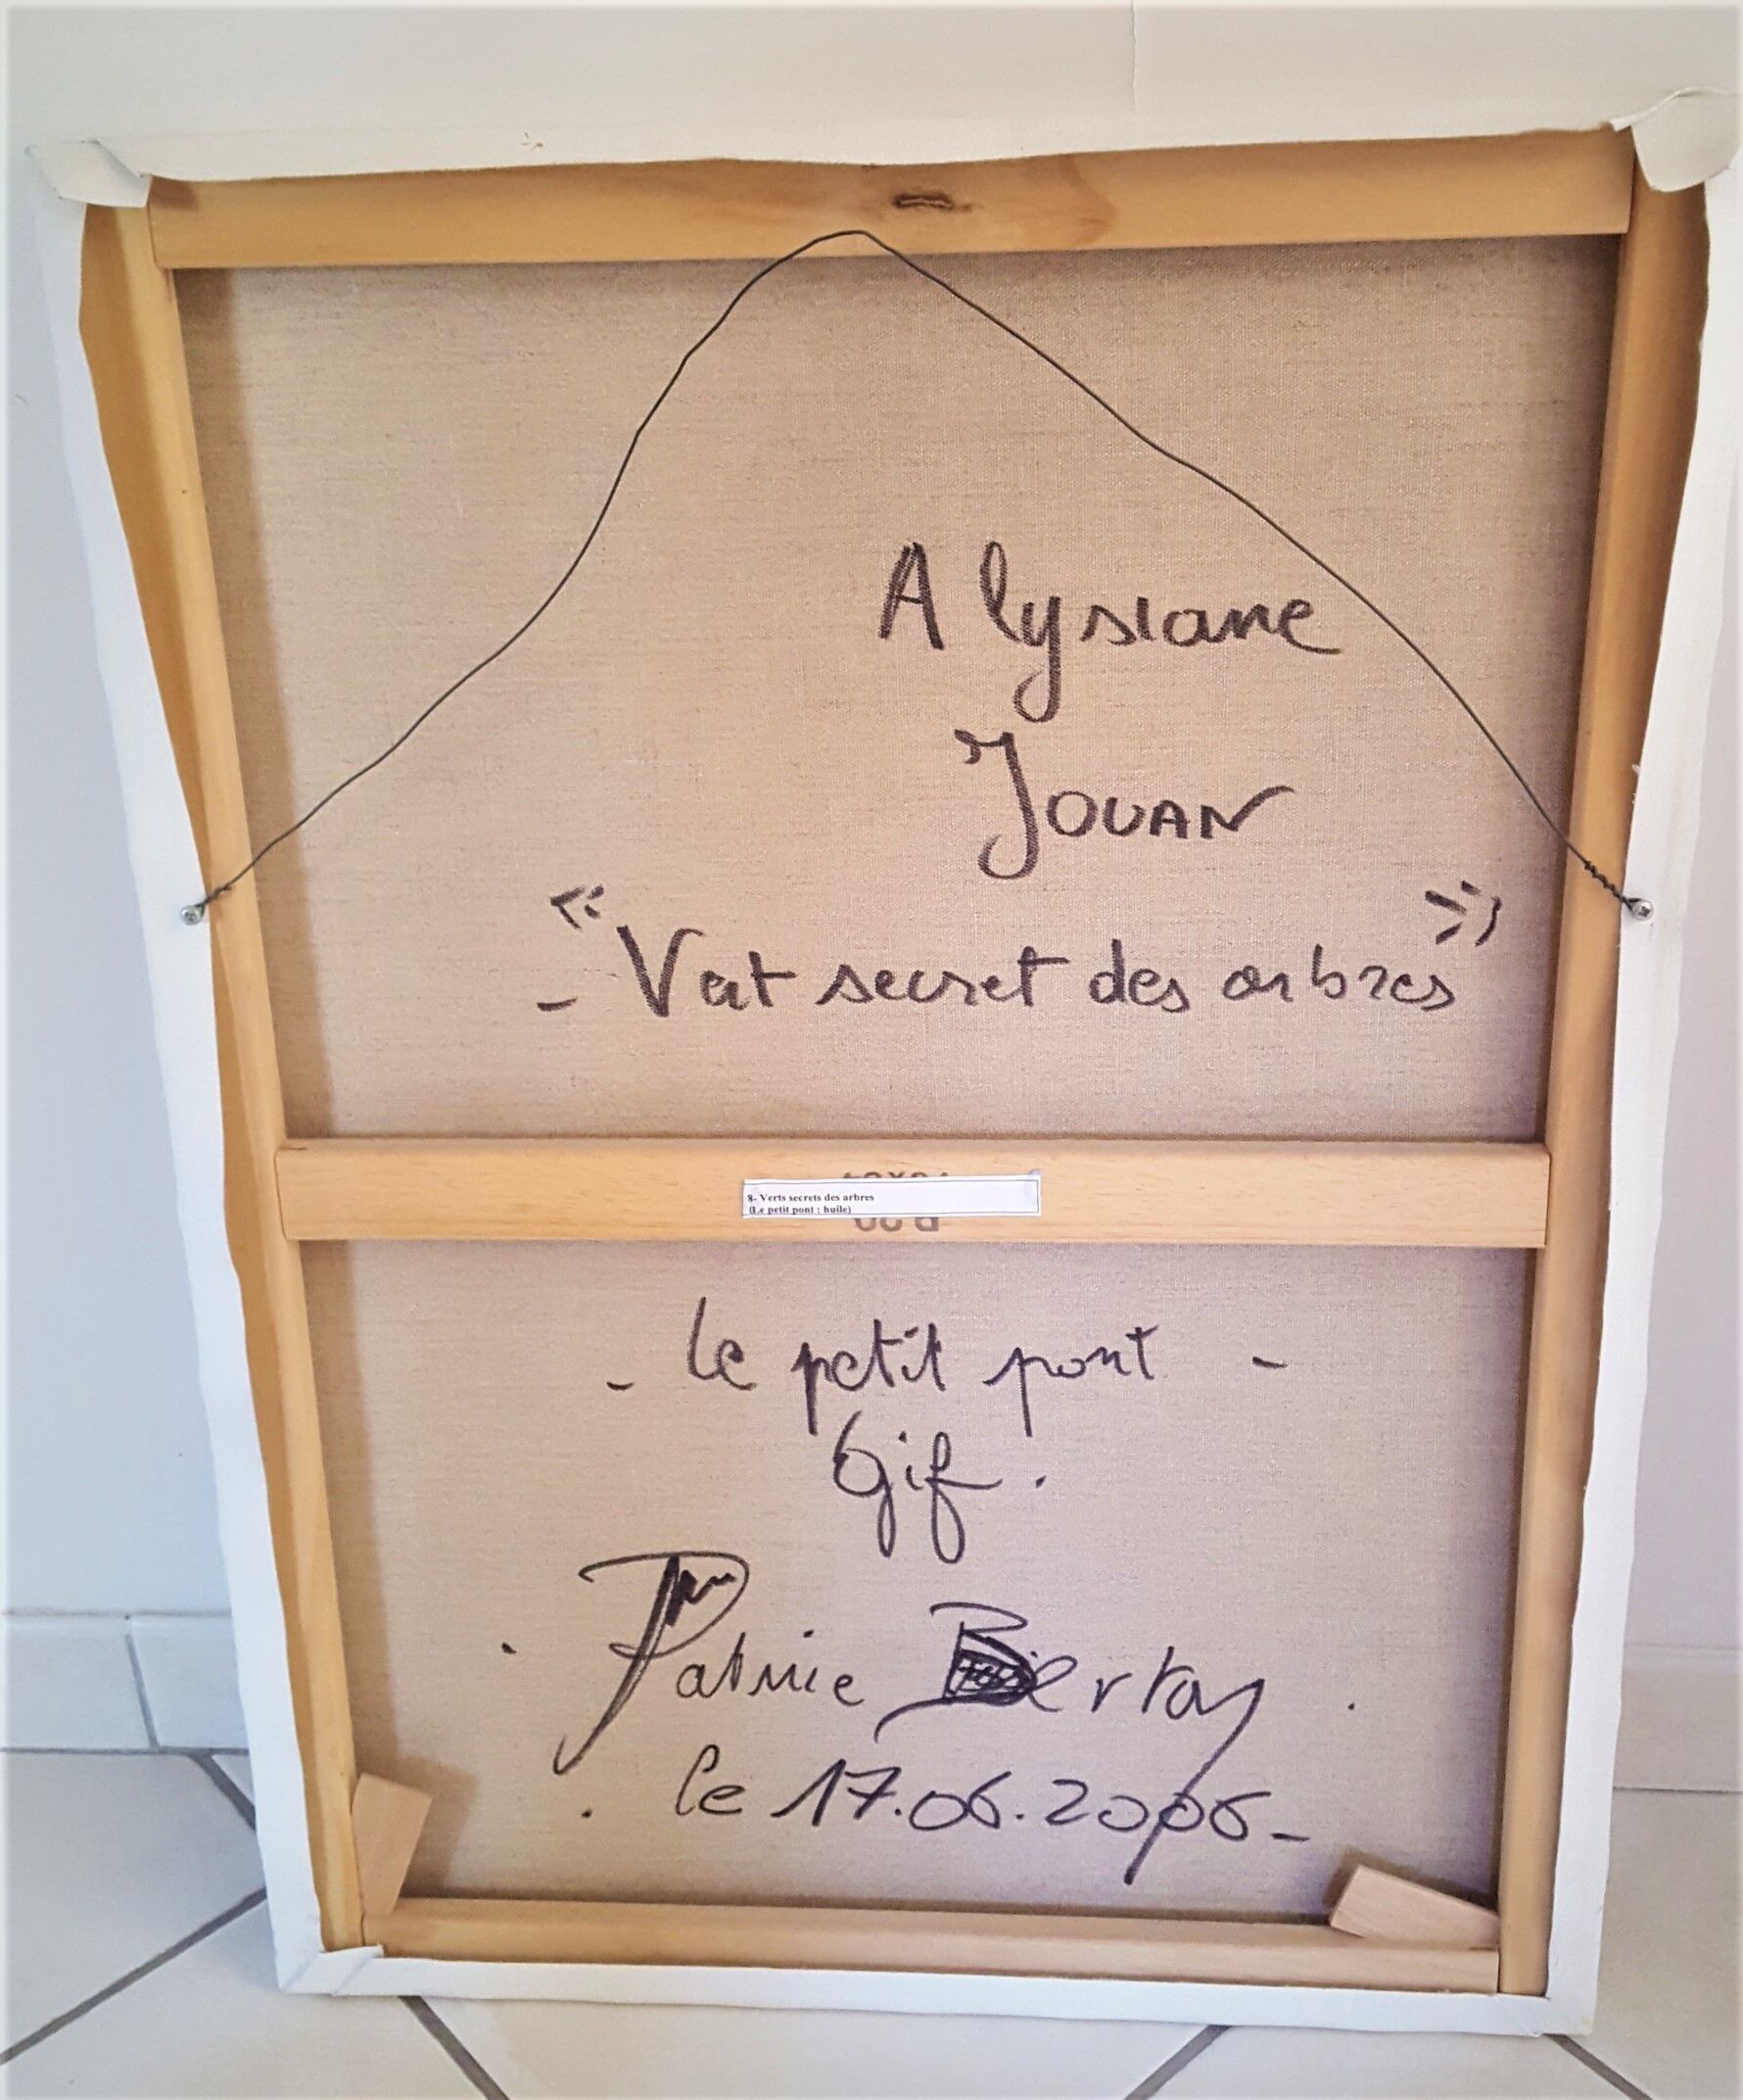 A lysiane
Jouan
- "Vert secret des arbres"
8- Verts secrets des arbres
(Le petit pont : huile)
- Le petit pont -
Gif.
. Patrice Bertoy .
. le 17.06.2006-